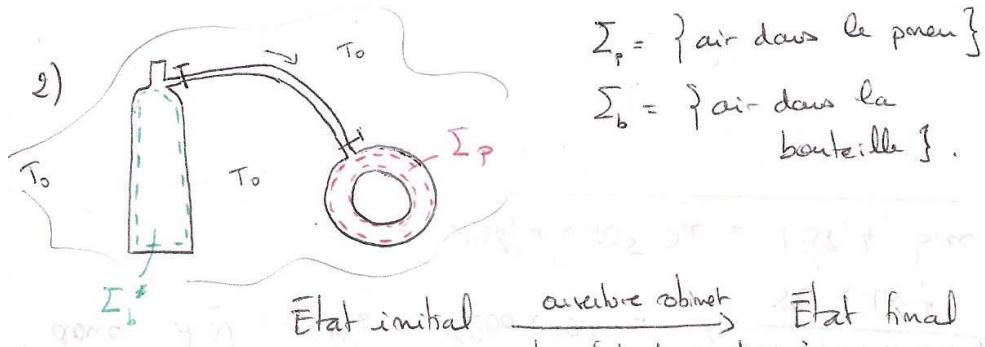 2)
T₀
Σ_p = { air dans le pneu }
Σ_b = { air dans la
bouteille }.
Σ_p
T₀
T₀
Σ_b
État initial ouverture robinet → État final